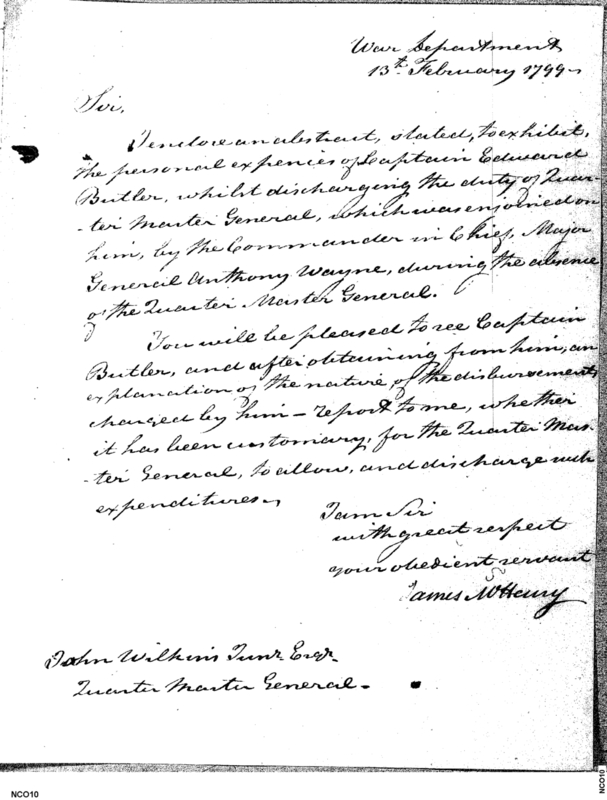 War Department
13th February 1799
Sir,
I enclose an abstract, stated, to exhibit,
the personal expences of Captain Edward
Butler, whilst discharging the duty of Quar
-ter Master General, which was enjoined on
him, by the Commander in Chief, Major
General Anthony Wayne, during the absence
of the Quarter Master General.
You will be pleased to see Captain
Butler, and after obtaining from him, an
explanation of the nature of the disbursements
charged by him — report to me, whether
it has been customary, for the Quarter Mas-
-ter General, to allow, and discharge such
expenditures.
I am Sir
with great respect
your obedient servant
James McHenry
John Wilkins Junr. Esqr.
Quarter Master General.
NCO10
NCO10